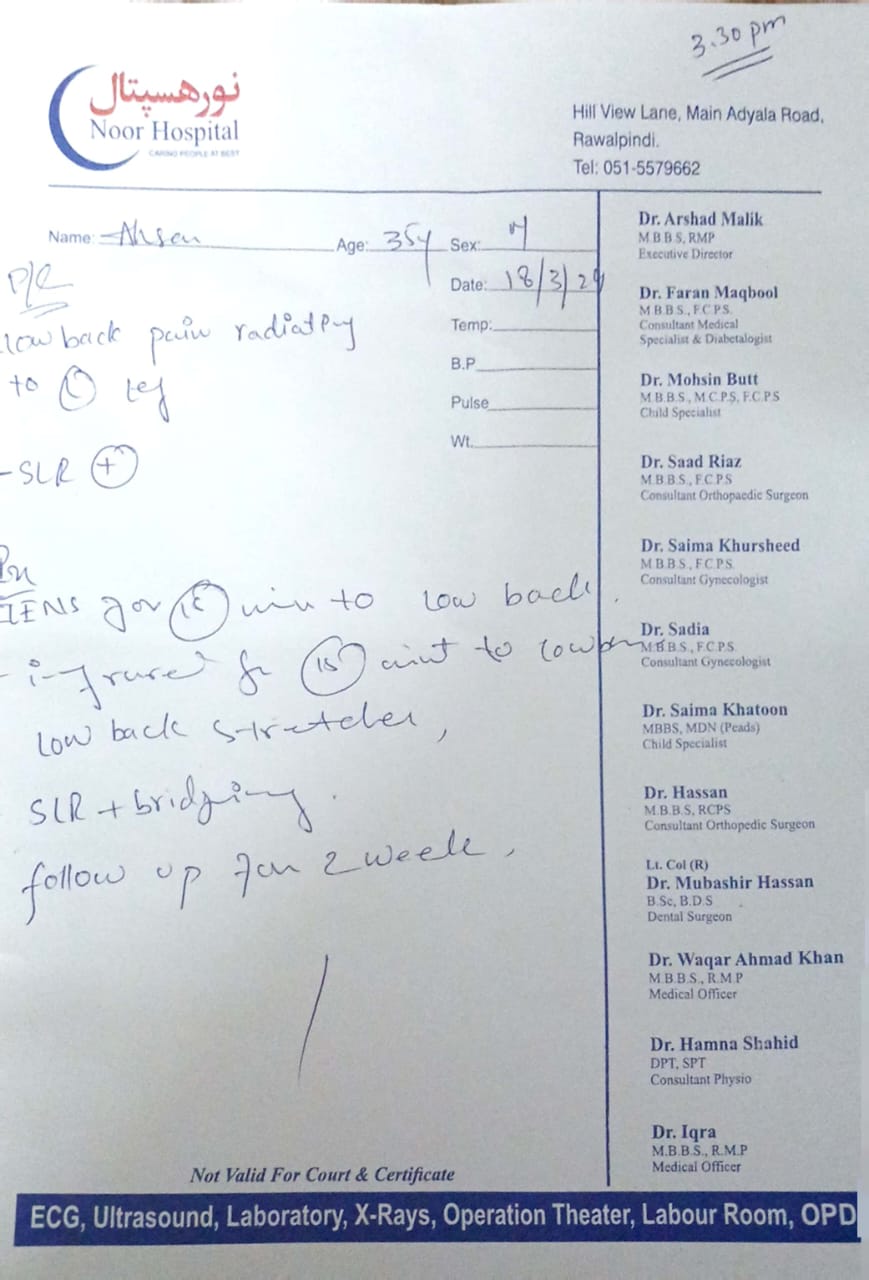 3.30 pm
نور ہسپتال
Noor Hospital
CARING PEOPLE AT BEST
Hill View Lane, Main Adyala Road,
Rawalpindi.
Tel: 051-5579662
Name: Ahsan Age: 35y Sex: M
Date: 18/3/24
Temp:
B.P
Pulse
Wt.
P/C
low back pain radiating
to L leg
- SLR +
Rx
TENS for 15 min to low back.
- infrared for 15 mint to low
low back stretches,
SLR + bridging.
follow up for 2 week,
Dr. Arshad Malik
M.B.B.S, RMP
Executive Director
Dr. Faran Maqbool
M.B.B.S., F.C.P.S.
Consultant Medical
Specialist & Diabetalogist
Dr. Mohsin Butt
M.B.B.S., M.C.P.S, F.C.P.S
Child Specialist
Dr. Saad Riaz
M.B.B.S., F.C.P.S
Consultant Orthopaedic Surgeon
Dr. Saima Khursheed
M.B.B.S., F.C.P.S.
Consultant Gynecologist
Dr. Sadia
M.B.B.S., F.C.P.S.
Consultant Gynecologist
Dr. Saima Khatoon
MBBS, MDN (Peads)
Child Specialist
Dr. Hassan
M.B.B.S, RCPS
Consultant Orthopedic Surgeon
Lt. Col (R)
Dr. Mubashir Hassan
B.Sc, B.D.S
Dental Surgeon
Dr. Waqar Ahmad Khan
M.B.B.S., R.M.P
Medical Officer
Dr. Hamna Shahid
DPT, SPT
Consultant Physio
Dr. Iqra
M.B.B.S., R.M.P
Medical Officer
Not Valid For Court & Certificate
ECG, Ultrasound, Laboratory, X-Rays, Operation Theater, Labour Room, OPD